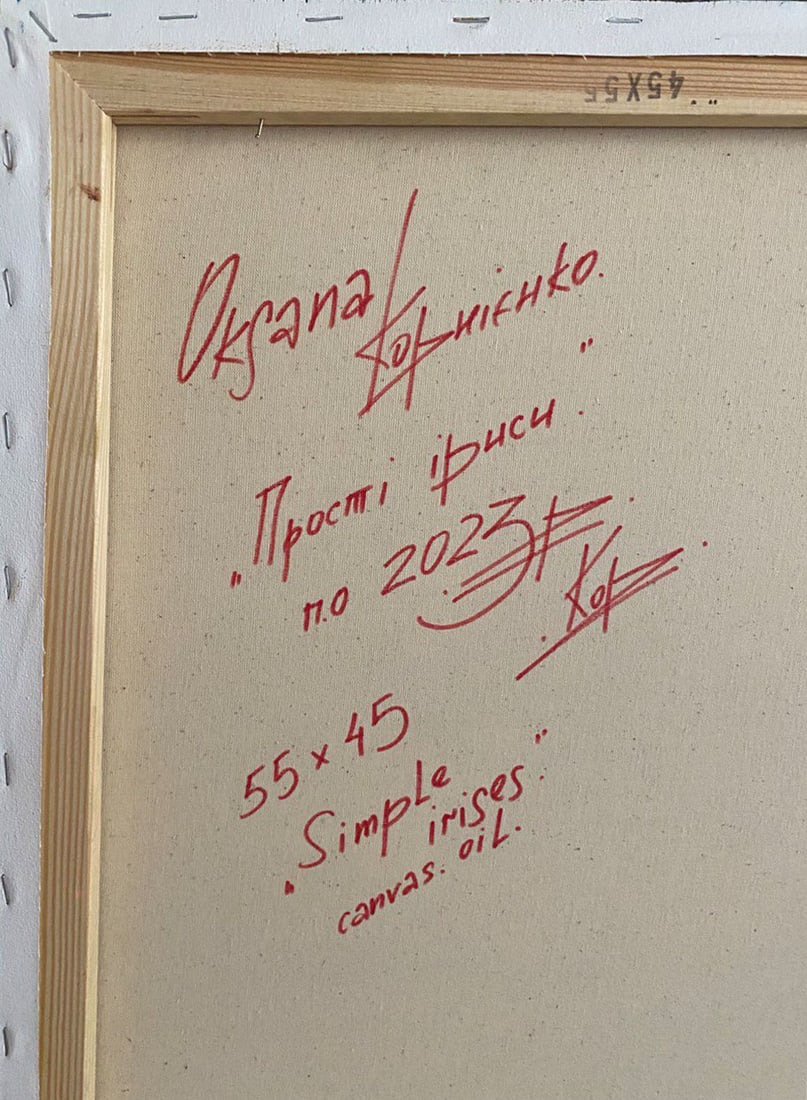 45X55
Oksana Корнієнко.
„Прості іриси."
п.о 2023р.
Кор.
55 x 45
„Simple
irises."
canvas. oil.